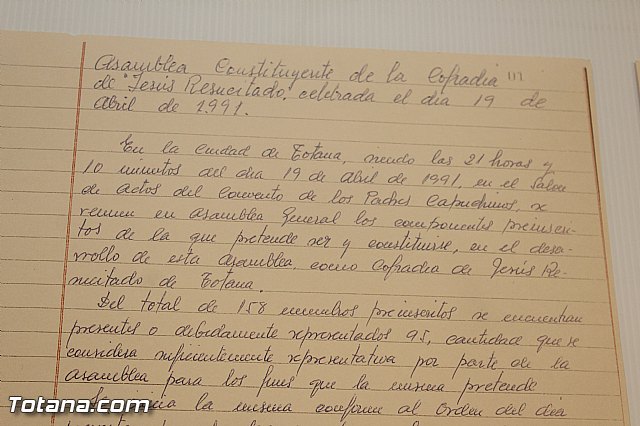 Asamblea Constituyente de la Cofradia
de "Jesús Resucitado", celebrada el dia 19 de
Abril de 1.991.
En la ciudad de Totana, siendo las 21 horas y
10 minutos del dia 19 de Abril de 1.991, en el Salon
de actos del Convento de los Padres Capuchinos, se
reunen en Asamblea General los componentes preinscri-
tos de la que pretende ser y constituirse, en el desa-
rrollo de esta Asamblea, como Cofradia de Jesús Re-
sucitado de Totana.
Del total de 158 miembros preinscritos se encuentran
presentes o debidamente representados 95, cantidad que se
considera suficientemente representativa por parte de la
asamblea para los fines que la misma pretende
la misma conforme al Orden del dia
Totana.com